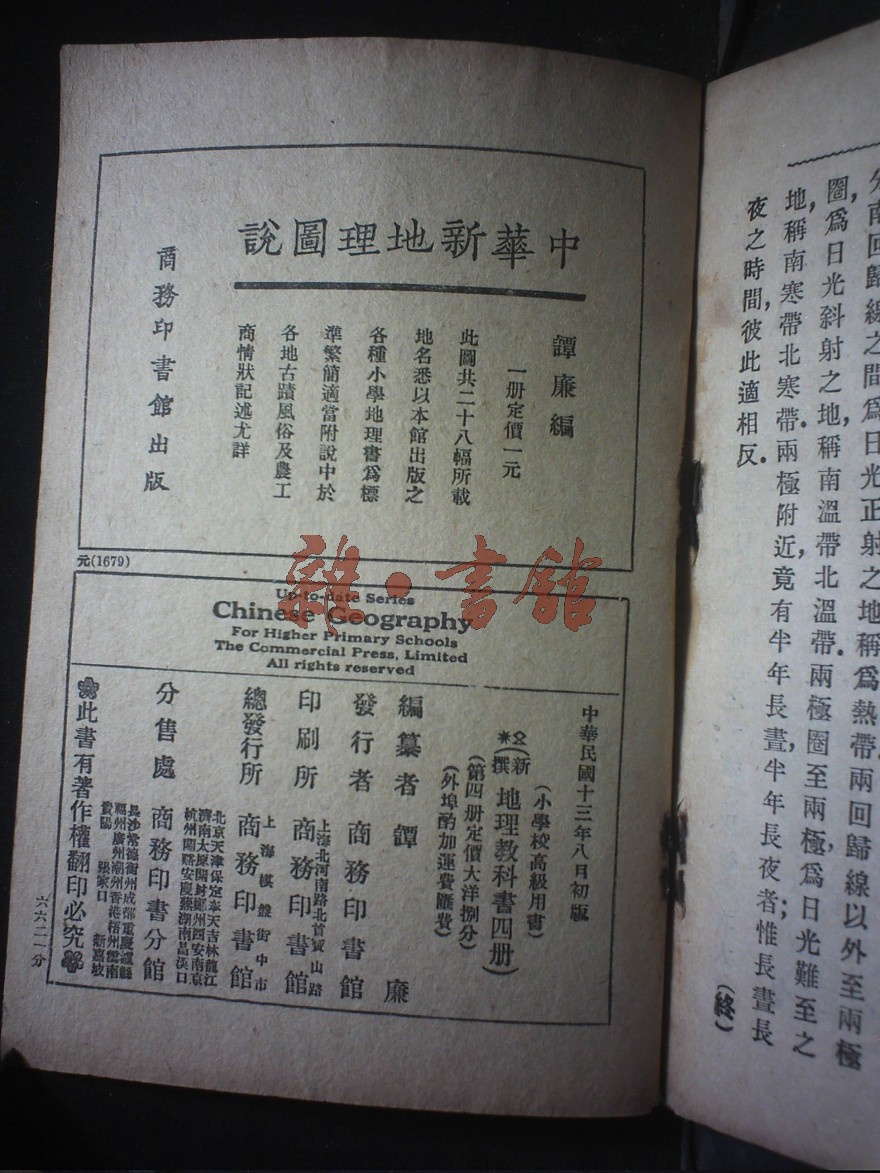 分南回歸線之間爲日光正射之地稱爲熱帶兩回歸線以外至兩極
圈,爲日光斜射之地,稱南溫帶北溫帶兩極圈至兩極,爲日光難至之
地,稱南寒帶北寒帶.兩極附近,竟有半年長晝,半年長夜者;惟長晝長
夜之時間,彼此適相反.
(終)
中華新地理圖說
譚廉編
一册定價一元
此圖共二十八幅所載
地名悉以本館出版之
各種小學地理書爲標
準繁簡適當附說中於
各地古蹟風俗及農工
商情狀記述尤詳
商務印書館出版
元(1679)
Up-to-date Series
Chinese Geography
For Higher Primary Schools
The Commercial Press, Limited
All rights reserved
中華民國十三年八月初版
(小學校高級用書)
(新撰地理教科書四册)
(第四册定價大洋捌分)
(外埠酌加運費匯費)
編纂者 譚廉
發行者 商務印書館
上海北河南路北首寶山路
印刷所 商務印書館
上海棋盤街中市
總發行所 商務印書館
北京天津保定奉天吉林龍江
濟南太原開封鄭州西安南京
杭州蘭谿安慶蕪湖南昌漢口
分售處 商務印書分館
長沙常德衡州成都重慶瀘縣
福州廣州潮州香港梧州雲南
貴陽 張家口 新嘉坡
此書有著作權翻印必究
六六二一分
雜·書館